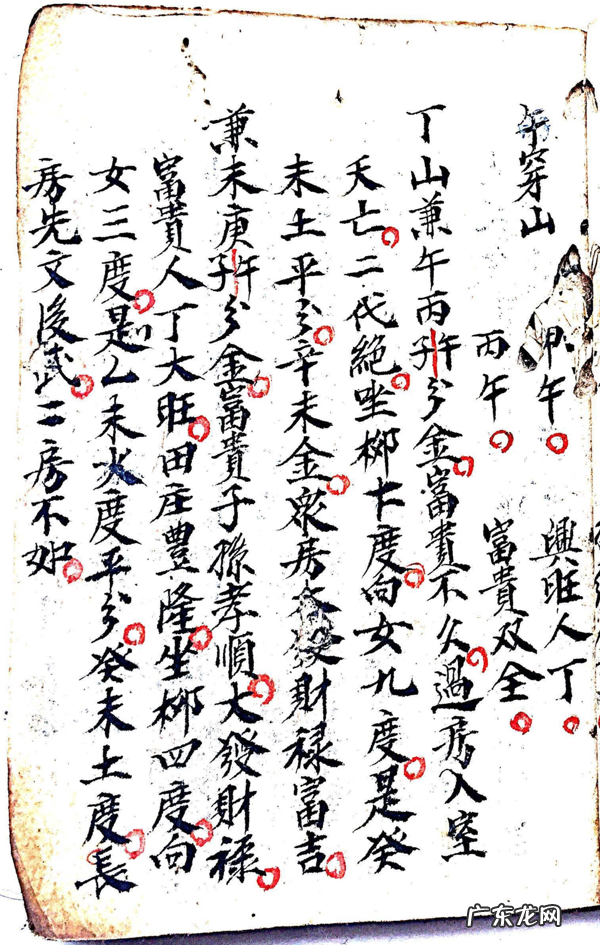 午穿山
甲午
興旺人丁
丙午
富貴双全
丁山兼午丙子午分金富貴不久過房入室
夭亡二代絕坐柳十度向女九度是癸
未土平分辛未金衆房大發財禄富吉
兼未庚子午分金富貴子孫孝順大發財禄
富貴人丁大旺田庄豊隆坐柳四度向
女三度是乙未火度平分癸未土度長
房先文後武二房不如
广东龙网